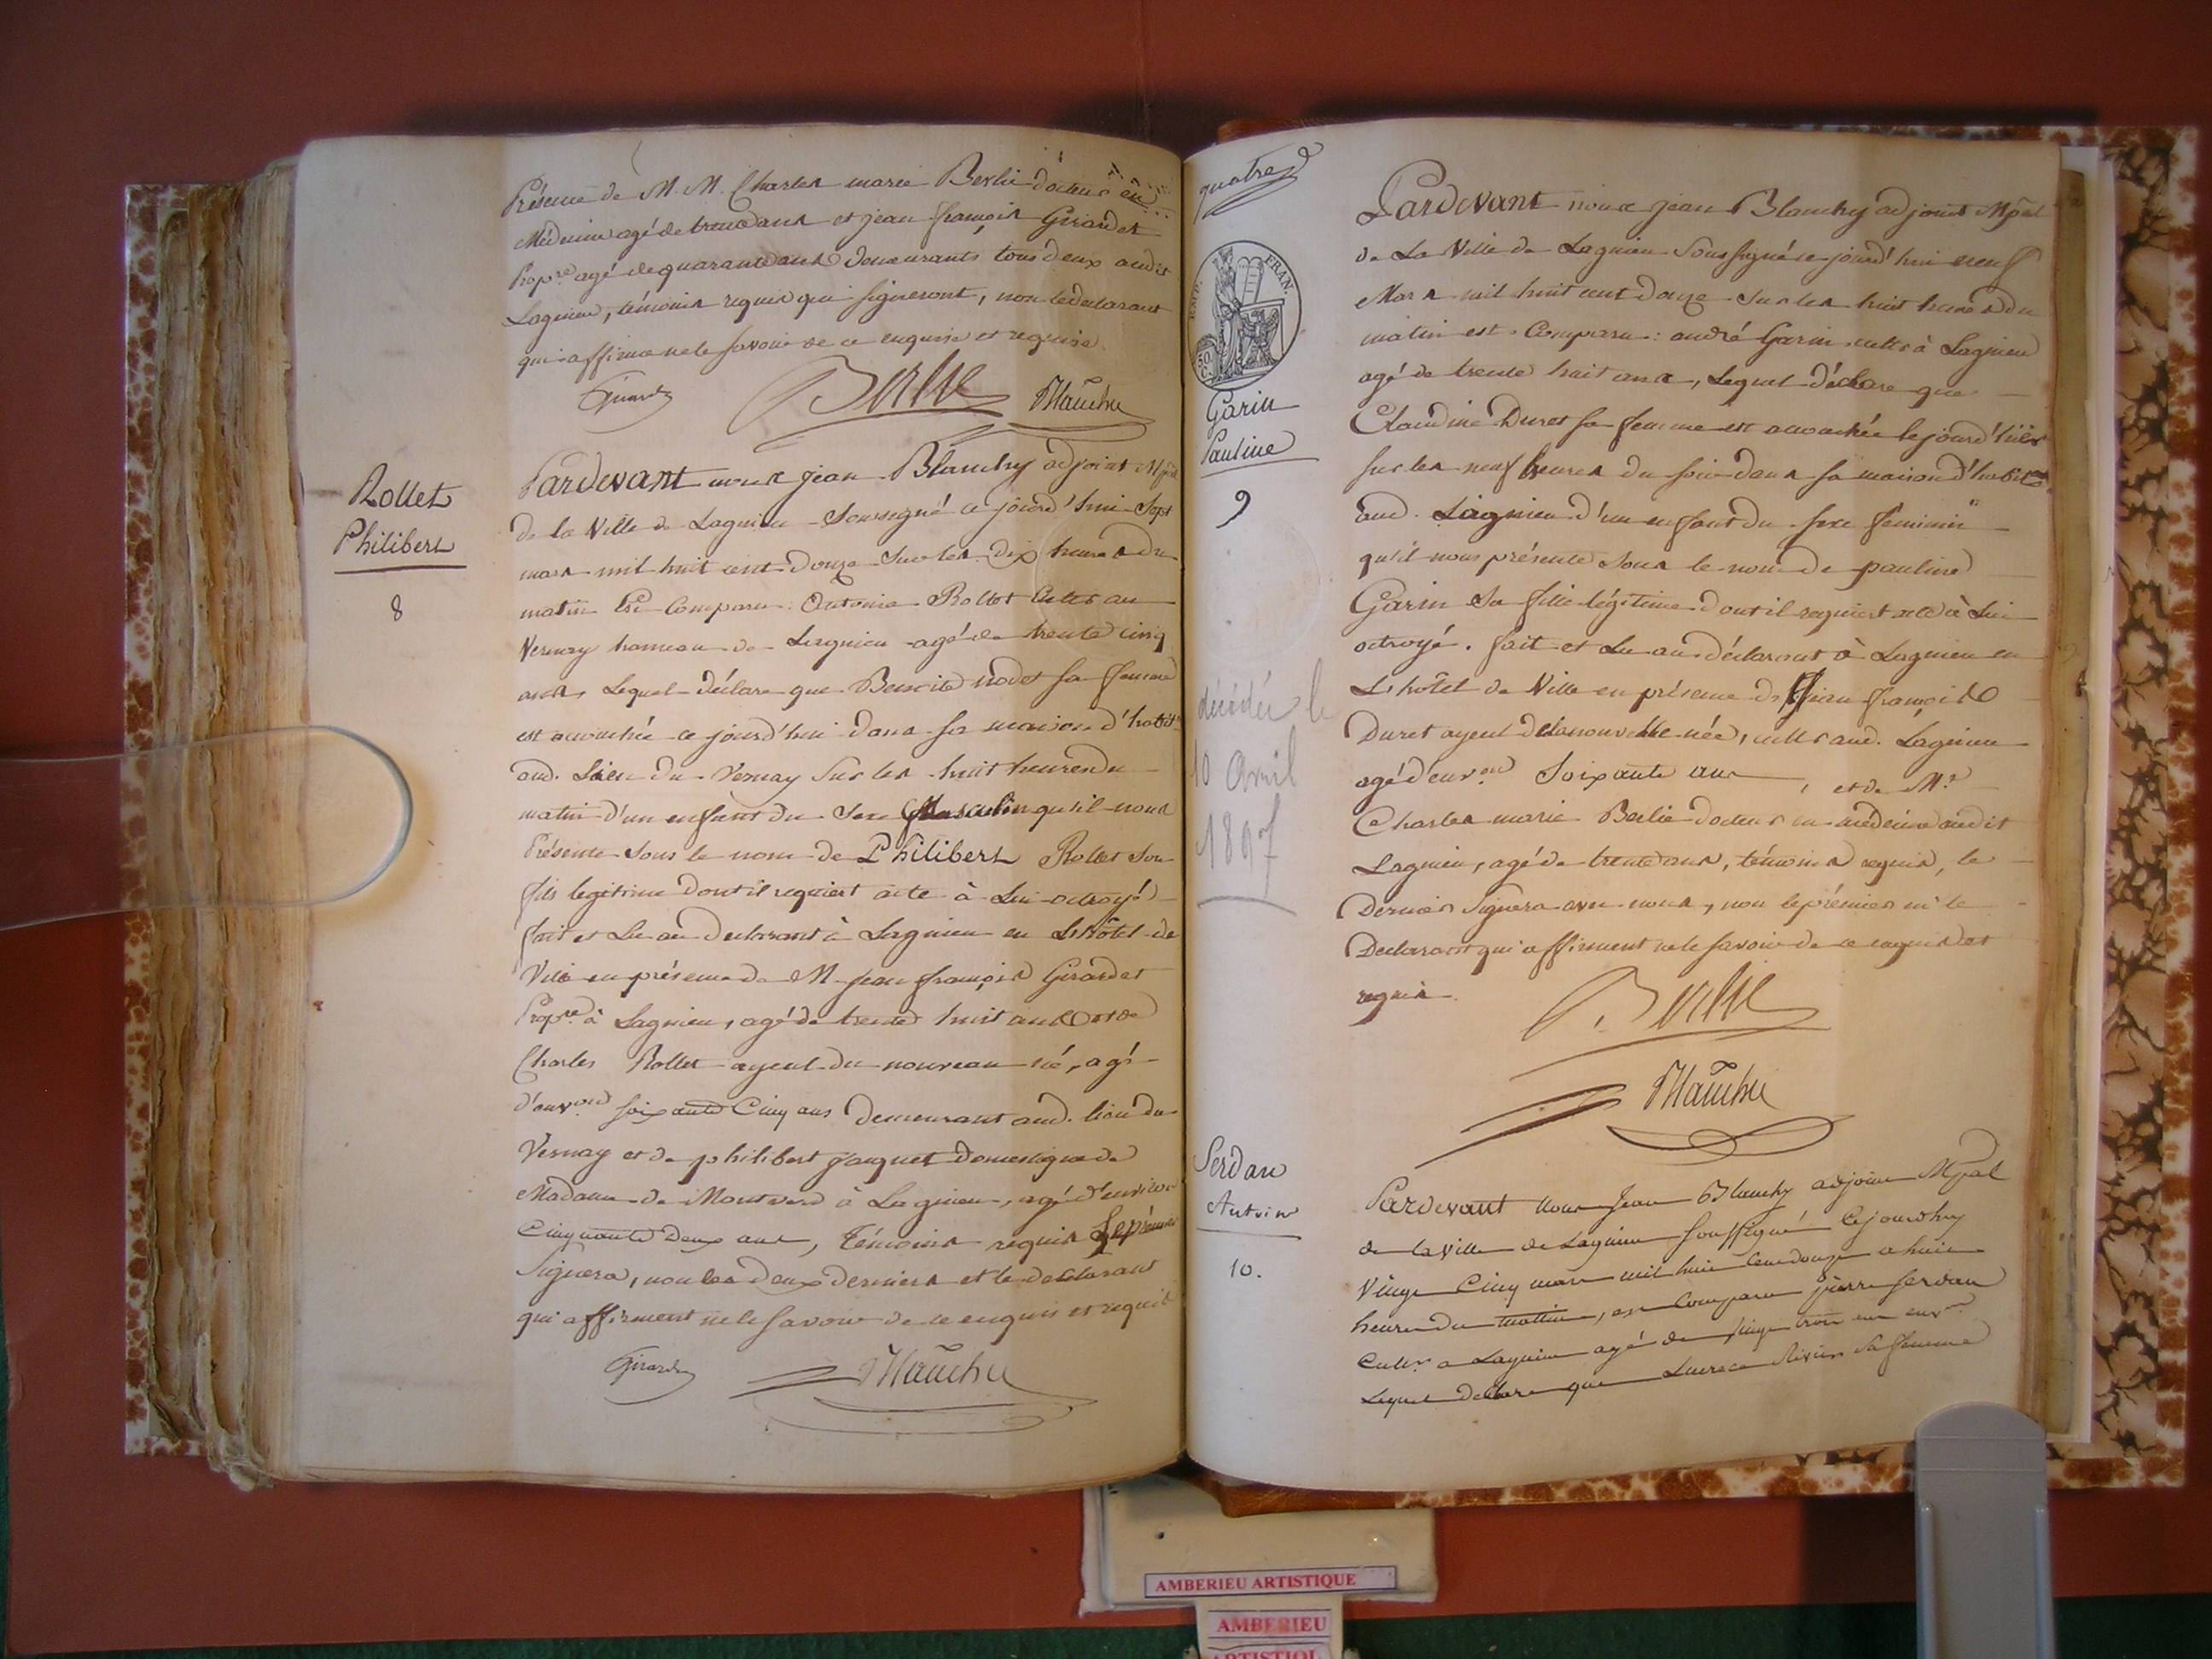 Présence de M. M. Charles marie Berlie docteur en
Médecine agé de trente ans et jean françois Girardet
Propre agé de quarante ans demeurants tous deux audit
Lagnieu, témoins requis qui signeront, non le déclarant
qui affirme ne le savoir de ce enquise et requise
Girardet Berlie Blanchy
Rollet
Philibert
8
Pardevant nous jean Blanchy adjoint Mpal
de la Ville de Lagnieu Soussigné ce jourd'hui Sept
mars mil huit cent douze sur les dix heures du
matin Est Comparu : Antoine Rollet Cultr au
Vernay hameau de Lagnieu agé de trente cinq
ans, Lequel déclare que sa femme
est accouchée ce jourd'hui dans sa maison d'habiton
aud. Lieu du Vernay sur les huit heures du
matin d'un enfant du Sexe Masculin qu'il nous
Présente sous le nom de Philibert Rollet Son
fils legitime dont il requiert acte à Lui octroyé
fait et Lu au declarant à Lagnieu en L'hôtel de
Ville en présence de M jean françois Girardet
Propre à Lagnieu, agé de trente huit ans et de
Charles Rollet ayeul du nouveau né, agé
d'environ soixante Cinq ans demeurant aud. lieu du
Vernay et de philibert jacquet domestique de
Madame de Montverd à Lagnieu, agé d'environ
Cinquante Deux ans, Témoins requis Le prémier
Signera, non les deux derniers et le declarant
qui affirment ne le savoir de ce enquis et requis
Girardet Blanchy
quatre
EMP. FRAN.
50 C.
Garin
Pauline
9
décédée le
10 Avril
1897
Pardevant nous jean Blanchy adjoint Mpal
de La Ville de Lagnieu Soussigné ce jourd'hui neuf
Mars mil huit cent douze sur les huit heures du
matin est Comparu : andré Garin cultr à Lagnieu
agé de trente huit ans, Lequel déclare que
Claudine Duret sa femme est accouchée le jourd'hier
sur les neuf heures du soir dans sa maison d'habiton
aud. Lagnieu d'un enfant du sexe féminin
qu'il nous présente sous le nom de pauline
Garin sa fille légitime dont il requiert acte à Lui
octroyé. fait et Lu au déclarant à Lagnieu en
L'hôtel de Ville en présence de jean françois
Duret ayeul de la nouvelle née, cultr aud. Lagnieu
agé d'environ Soixante ans, et de Mr
Charles marie Berlie docteur en médecine audit
Lagnieu, agé de trente ans, témoins requis, le
Dernier Signera avec nous, non le prémier ni le
Déclarant qui affirment ne le savoir de ce enquis et
requis
Berlie
Blanchy
Serdan
Antoine
10.
Pardevant nous Jean Blanchy adjoint Mpal
de la Ville de Lagnieu soussigné Cejourdhuy
Vingt Cinq mars mil huit Cent douze a huit
heures du mattin, est Comparu pierre serdan
Cultr a Lagnieu agé de vingt trois ans envn
Lequel declare que sa femme
AMBERIEU ARTISTIQUE
AMBERIEU
ARTISTIQUE